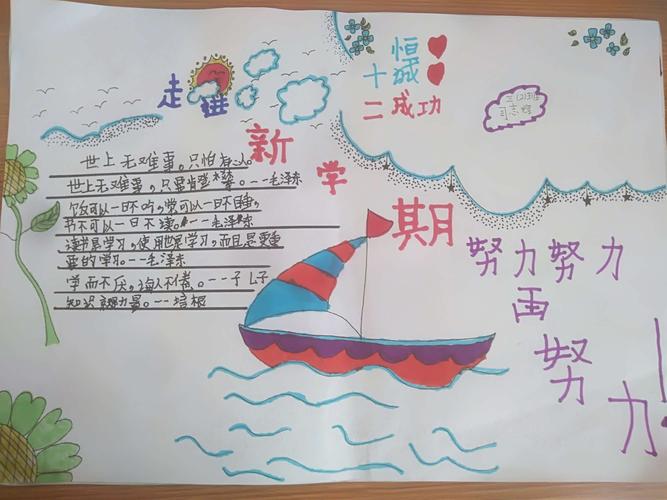 走进
新
学
期
恒
十诚
二成功
三(2)班
世上无难事。只怕有心人。
世上无难事,只要肯登攀。--毛泽东
饭可以一日不吃,觉可以一日不睡,
书不可以一日不读。--毛泽东
读书是学习,使用也是学习,而且是更重
要的学习。--毛泽东
学而不厌,诲人不倦。--孔子
知识就是力量。--培根
努力努力
再
努
力!